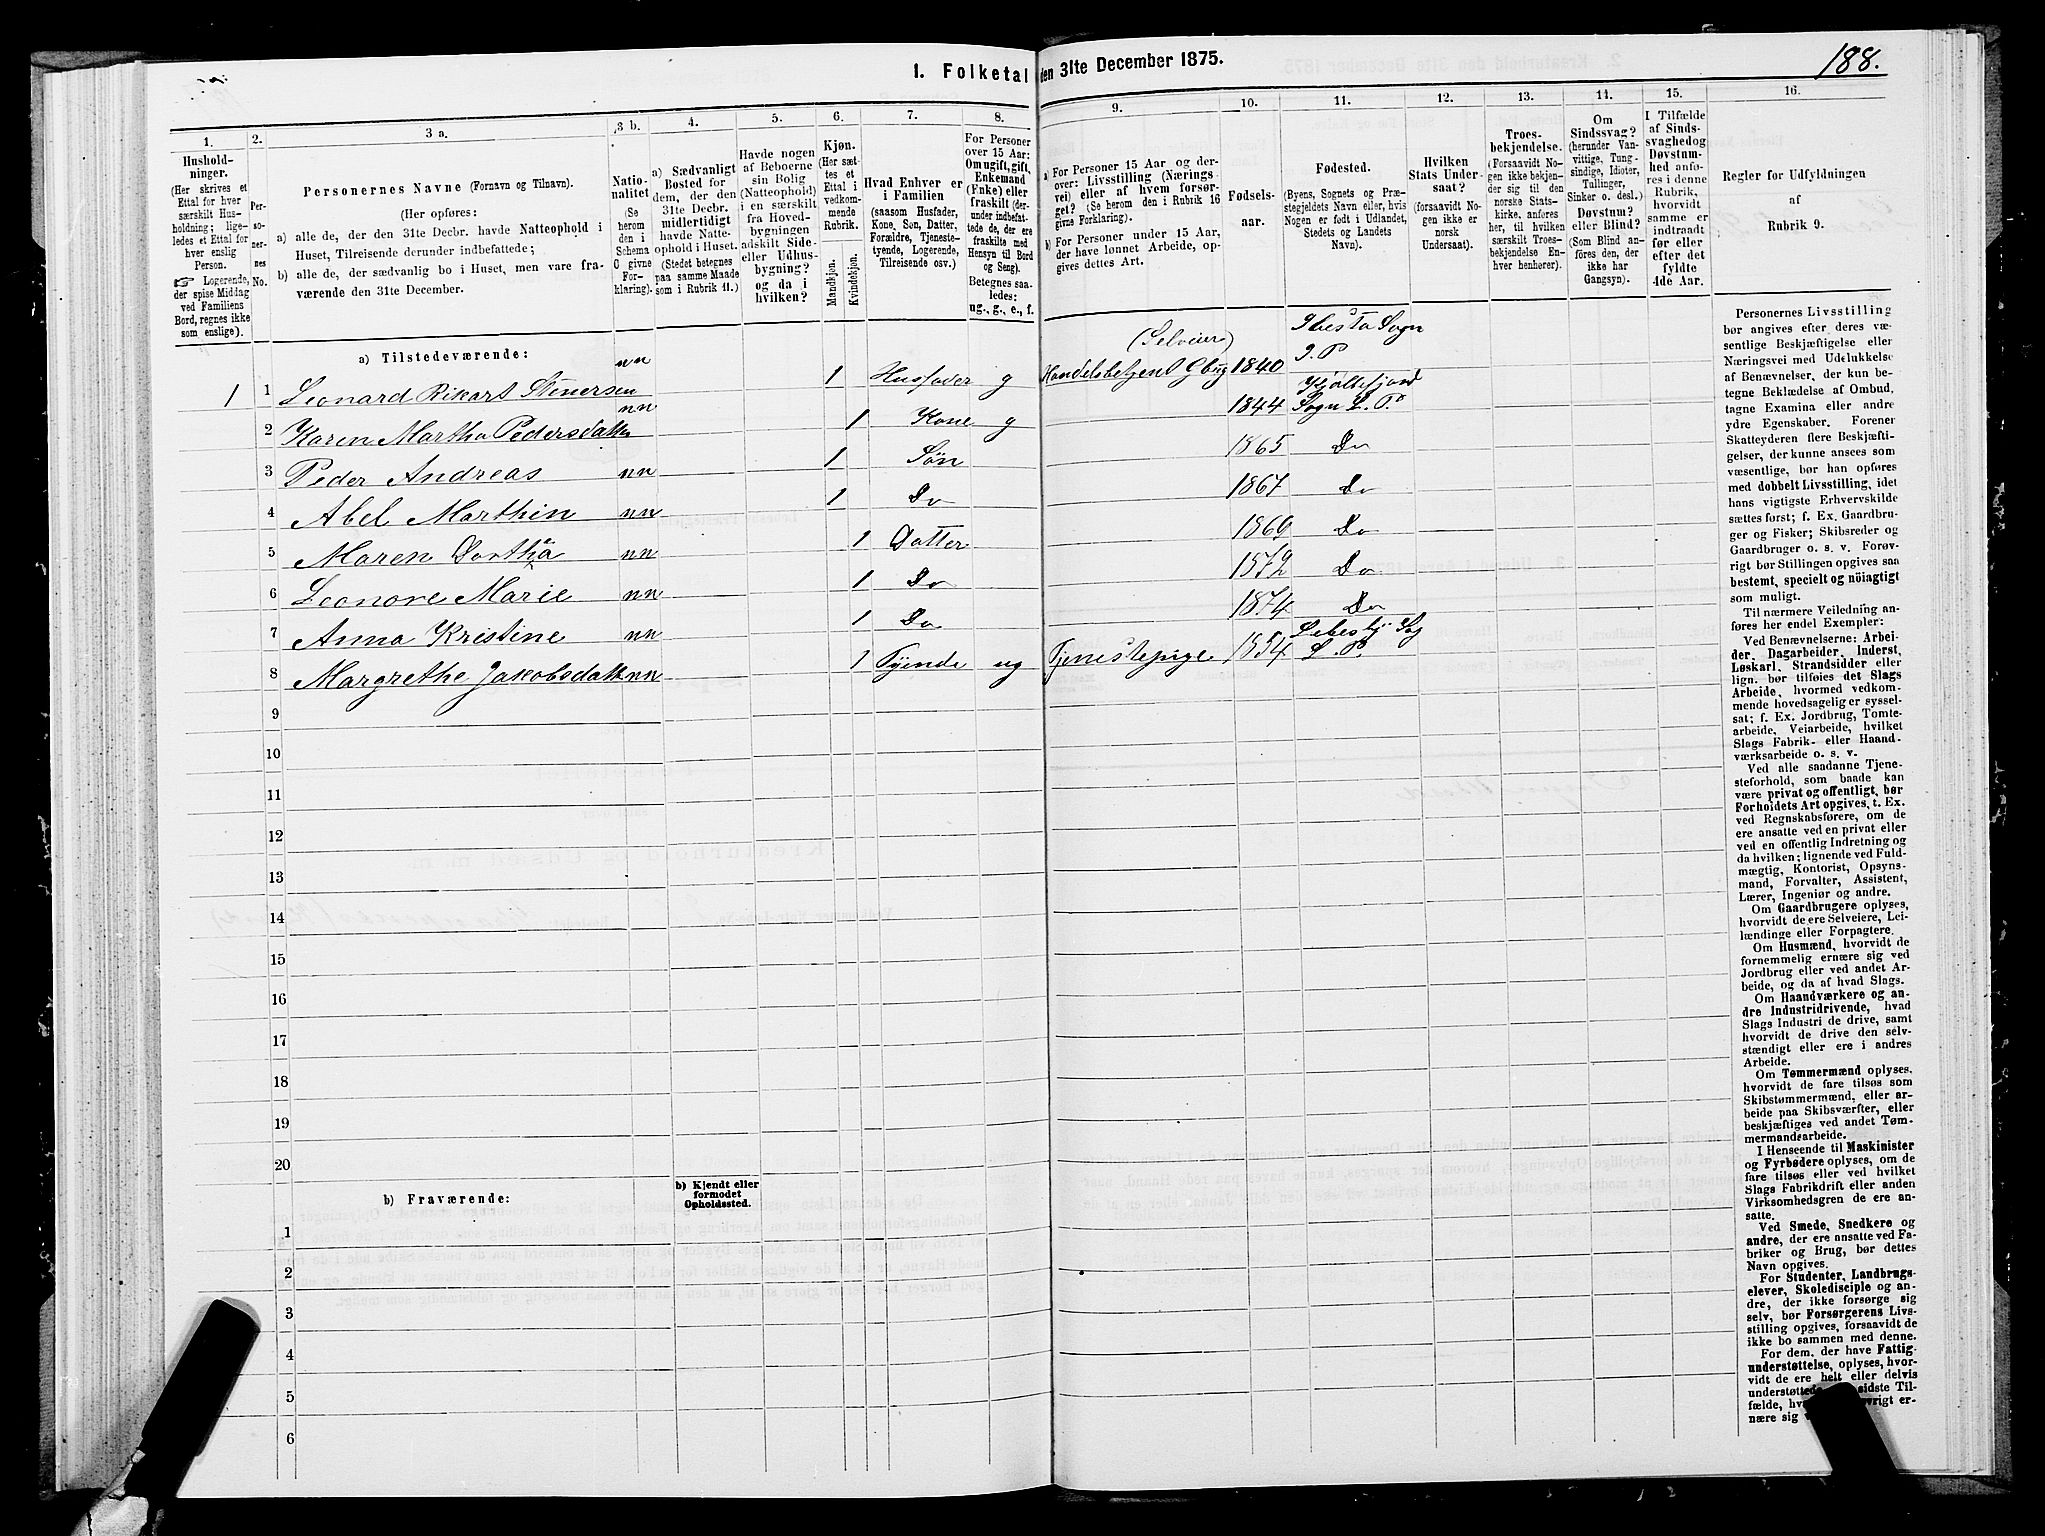 188.
1. Folketal den 31te December 1875.
1. 2. 3 a. 3 b. 4. 5. 6. 7. 8. 9. 10. 11. 12. 13. 14. 15. 16.
Hushold-
ninger.
(Her skrives et
Ettal for hver
særskilt Hus-
holdning; lige-
ledes et Ettal for
hver enslig
Person.
☞ Logerende,
der spise Middag
ved Familiens
Bord, regnes ikke
som enslige).
Per-
so-
ner-
nes
No.
Personernes Navne (Fornavn og Tilnavn).
(Her opføres:
a) alle de, der den 31te Decbr. havde Natteophold i
Huset, Tilreisende derunder indbefattede;
b) alle de, der sædvanlig bo i Huset, men vare fra-
værende den 31te December.
Natio-
nalitet
(Se
herom
den i
Schema
C givne
For-
klaring).
a) Sædvanligt
Bosted for
dem, der den
31te Decbr.
midlertidigt
havde Natte-
ophold i Huset.
(Stedet betegnes
paa samme Maade
som i Rubrik 11.)
Havde nogen
af Beboerne
sin Bolig
(Natteophold)
i en særskilt
fra Hoved-
bygningen
adskilt Side-
eller Udhus-
bygning?
og da i
hvilken?
Kjøn.
(Her sæt-
tes et
Ettal i
vedkom-
mende
Rubrik.
Mandkjøn.
Kvindekjøn.
Hvad Enhver er
i Familien
(saasom Husfader,
Kone, Søn, Datter,
Forældre, Tjeneste-
tyende, Logerende,
Tilreisende osv.)
For Personer
over 15 Aar:
Om ugift, gift,
Enkemand
(Enke) eller
fraskilt (der-
under indbefat-
tede de, der ere
fraskilte med
Hensyn til Bord
og Seng).
Betegnes saa-
ledes:
ug., g., e., f.
a) For Personer 15 Aar og der-
over: Livsstilling (Nærings-
vei) eller af hvem forsør-
get? (Se herom den i Rubrik 16
givne Forklaring).
b) For Personer under 15 Aar,
der have lønnet Arbeide, op-
gives dettes Art.
Fødsels-
aar.
Fødested.
(Byens, Sognets og Præ-
stegjeldets Navn eller, hvis
Nogen er født i Udlandet,
Stedets og Landets
Navn).
Hvilken
Stats Under-
saat?
(forsaavidt No-
gen ikke er
norsk
Undersaat).
Troes-
bekjendelse.
(Forsaavidt No-
gen ikke bekjen-
der sig til den
norske Stats-
kirke, anføres
her, til hvilken
særskilt Troes-
bekjendelse En-
hver henhører).
Om
Sindssvag?
(herunder Van-
vittige, Tung-
sindige, Idioter,
Tullinger,
Sinker o. desl.)
Døvstum?
eller Blind?
(Som Blind an-
føres den, der
ikke har
Gangsyn).
I Tilfælde
af Sinds-
svaghed og
Døvstum-
hed anfø-
res i denne
Rubrik,
hvorvidt
samme er
indtraadt
før eller
efter det
fyldte
4de Aar.
Regler for Udfyldningen
af
Rubrik 9.
a) Tilstedeværende:
1 1 Leonard Rikart Stenersen nn 1 Husfader g (Selveier) Handelsbetjent Gbug 1840 Ibesta Sogn I. P.
2 Karen Martha Pedersdatter nn 1 Kone g 1844 Kjøllefjord Sogn L. P.
3 Peder Andreas nn 1 Søn 1865 Do
4 Abel Marthin nn 1 Do 1867 Do
5 Maren Dorthea nn 1 Datter 1869 Do
6 Leonore Marie nn 1 Do 1872 Do
7 Anna Kristine nn 1 Do 1874 Do
8 Margrethe Jakobsdatt nn 1 Tyende ug Tjenestepige 1854 Lebesby Sog L. P.
9
10
11
12
13
14
15
16
17
18
19
20
b) Fraværende:
b) Kjendt eller
formodet
Opholdssted.
1
2
3
4
5
6
Personernes Livsstilling
bør angives efter deres væ-
sentlige Beskjæftigelse eller
Næringsvei med Udelukkelse
af Benævnelser, der kun be-
tegne Beklædelse af Ombud,
tagne Examina eller andre
ydre Egenskaber. Forener
Skatteyderen flere Beskjæfti-
gelser, der kunne ansees som
væsentlige, bør han opføres
med dobbelt Livsstilling, idet
hans vigtigste Erhvervskilde
sættes først; f. Ex. Gaardbru-
ger og Fisker; Skibsreder og
Gaardbruger o. s. v. Forøv-
rigt bør Stillingen opgives saa
bestemt, specielt og nöiagtigt
som muligt.
Til nærmere Veiledning an-
føres her endel Exempler:
Ved Benævnelserne: Arbei-
der, Dagarbeider, Inderst,
Løskarl, Strandsidder eller
lign. bør tilføies det Slags
Arbeide, hvormed vedkom-
mende hovedsagelig er syssel-
sat; f. Ex. Jordbrug, Tomte-
arbeide, Veiarbeide, hvilket
Slags Fabrik- eller Haand-
værksarbeide o. s. v.
Ved alle saadanne Tjene-
steforhold, som baade kan
være privat og offentligt, bør
Forholdets Art opgives, t. Ex.
ved Regnskabsførere, om de
ere ansatte ved en privat eller
ved en offentlig Indretning og
da hvilken; lignende ved Fuld-
mægtig, Kontorist, Opsyns-
mand, Forvalter, Assistent,
Lærer, Ingeniør og andre.
Om Gaardbrugere oplyses,
hvorvidt de ere Selveiere, Lei-
lændinge eller Forpagtere.
Om Husmænd, hvorvidt de
fornemmelig ernære sig ved
Jordbrug eller ved andet Ar-
beide, og da af hvad Slags.
Om Haandværkere og an-
dre Industridrivende, hvad
Slags Industri de drive, samt
hvorvidt de drive den selv-
stændigt eller ere i andres
Arbeide.
Om Tømmermænd oplyses,
hvorvidt de fare tilsøs som
Skibstømmermænd, eller ar-
beide paa Skibsværfter, eller
beskjæftiges ved andet Tøm-
mermandsarbeide.
I Henseende til Maskinister
og Fyrbødere oplyses, om de
fare tilsøs eller ved hvilket
Slags Fabrikdrift eller anden
Virksomhedsgren de ere an-
satte.
Ved Smede, Snedkere og
andre, der ere ansatte ved Fa-
briker og Brug, bør dettes
Navn opgives.
For Studenter, Landbrugs-
elever, Skoledisciple og an-
dre, der ikke forsørge sig
selv, bør Forsørgerens Livs-
stilling opgives, forsaavidt de
ikke bo sammen med denne.
For dem, der have Fattig-
understøttelse, oplyses, hvor-
vidt de ere helt eller delvis
understøttede sidste Til-
fælde, er-
nære sig